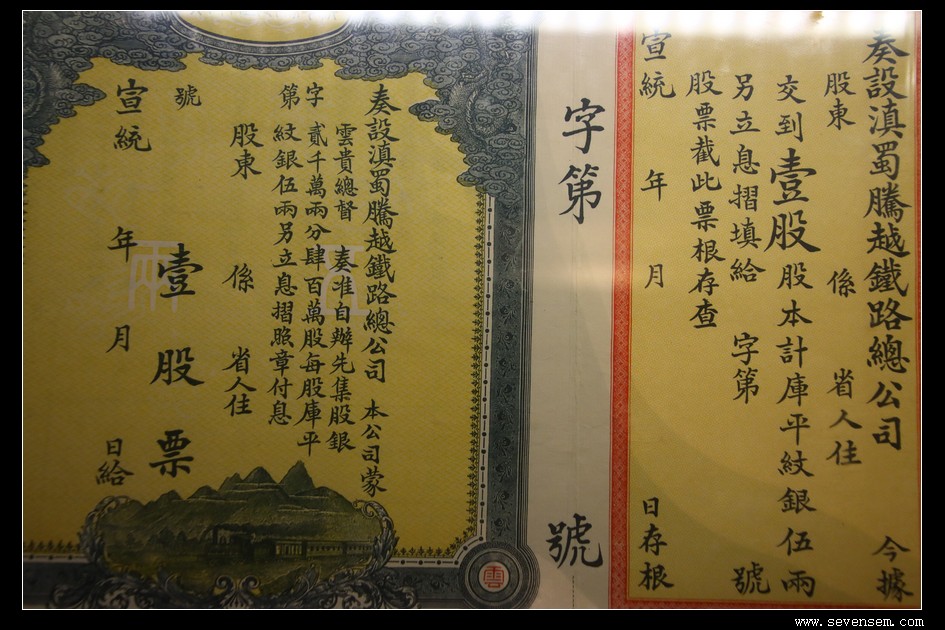 奏設滇蜀騰越鐵路總公司 今據
股東 係 省人住
交到壹股股本計庫平紋銀伍兩
另立息摺填給 字第 號
股票截此票根存查
宣統 年 月 日存根
字第 號
奏設滇蜀騰越鐵路總公司 本公司蒙
雲貴總督 奏准自辦先集股銀
字 貳千萬兩分肆百萬股每股庫平
第 紋銀伍兩另立息摺照章付息
股東 係 省人住
號 壹股票
宣統 年 月 日給
伍兩
雲
www.sevensem.com